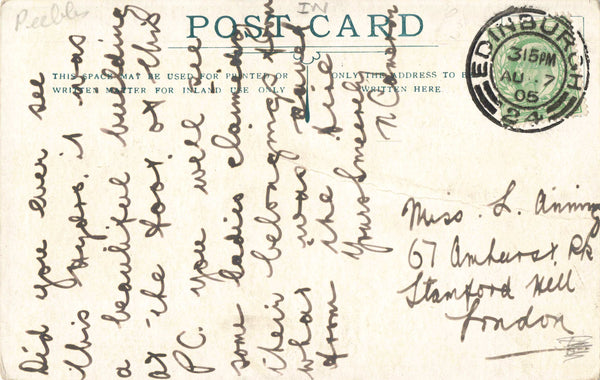 Peebles
IN
POST CARD
THIS SPACE MAY BE USED FOR PRINTED OR
WRITTEN MATTER FOR INLAND USE ONLY
ONLY THE ADDRESS TO BE
WRITTEN HERE.
EDINBURGH
3 15 PM
AU 7
05
24
Did you ever see
this Hydro. it was
a beautiful building
at the foot of this
P.C. you will see
some ladies claiming
their belongings from
what was saved
from the fire
Yours Sincerely
Miss. L. Anning
67 Amhurst Pk
Stamford Hill
London